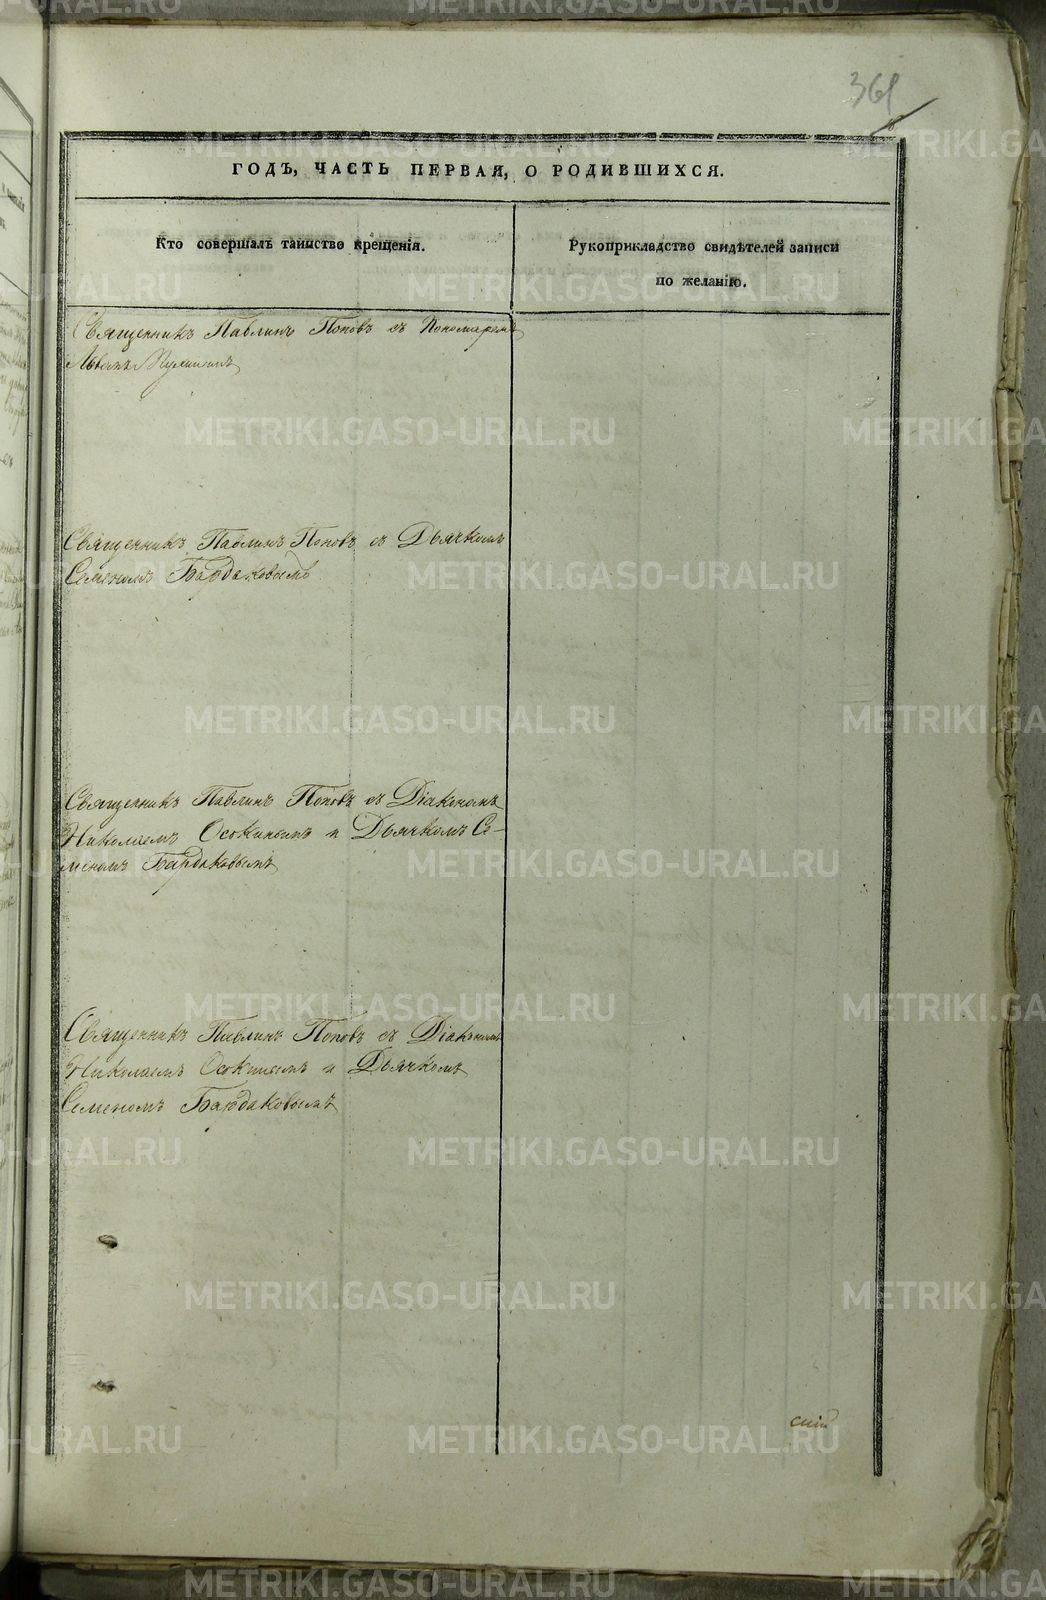 361
ГОДЪ, ЧАСТЬ ПЕРВАЯ, О РОДИВШИХСЯ.
Кто совершалъ таинство крещенія.
Рукоприкладство свидѣтелей записи
по желанію.
Священникъ Павлинъ Поповъ съ Пономаремъ
Священникъ Павлинъ Поповъ съ Дьячкомъ
Семеномъ Бардаковымъ
Священникъ Павлинъ Поповъ съ Діакономъ
Николаемъ Осокинымъ и Дьячкомъ Се-
меномъ Бардаковымъ
Священникъ Павлинъ Поповъ съ Діакономъ
Николаемъ Осокинымъ и Дьячкомъ
Семеномъ Бардаковымъ
METRIKI.GASO-URAL.RU